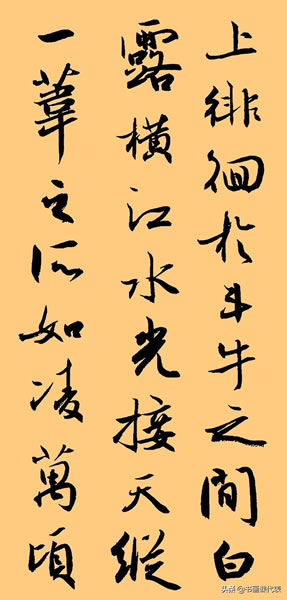 上徘徊於斗牛之間白
露橫江水光接天縱
一葦之所如凌萬頃
头条@书画疆代表